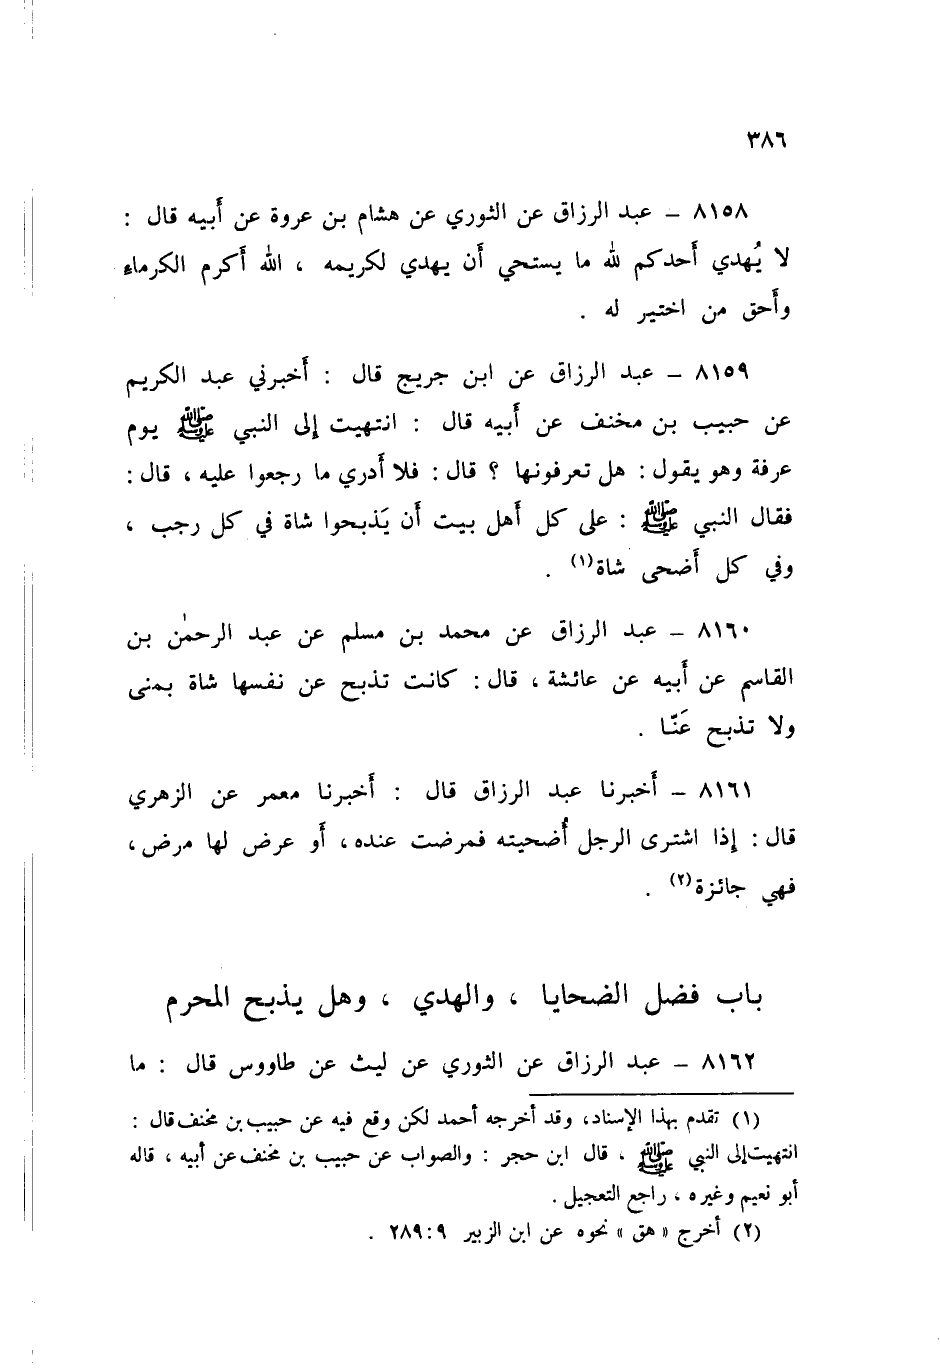 ٣٨٦
٨١٥٨ – عبد الرزاق عن الثوري عن هشام بن عروة عن أَبيه قال :
لا يُهدي أَحدكم لله ما يستحي أَن يهدي لكريمه ، الله أَكرم الكرماء
وأَحق من اختير له .
٨١٥٩ – عبد الرزاق عن ابن جريج قال : أَخبرني عبد الكريم
عن حبيب بن مخنف عن أَبيه قال : انتهيت إلى النبي ﷺ يوم
عرفة وهو يقول : هل تعرفونها ؟ قال : فلا أَدري ما رجعوا عليه ، قال :
فقال النبي ﷺ : على كل أَهل بيت أَن يَذبحوا شاة في كل رجب ،
وفي كل أَضحى شاة(١) .
٨١٦٠ – عبد الرزاق عن محمد بن مسلم عن عبد الرحمٰن بن
القاسم عن أَبيه عن عائشة ، قال : كانت تذبح عن نفسها شاة بمنى
ولا تذبح عَنّا .
٨١٦١ – أَخبرنا عبد الرزاق قال : أَخبرنا معمر عن الزهري
قال : إذا اشترى الرجل أُضحيته فمرضت عنده ، أَو عرض لها مرض ،
فهي جائزة(٢) .
باب فضل الضحايا ، والهدي ، وهل يذبح المحرم
٨١٦٢ – عبد الرزاق عن الثوري عن ليث عن طاووس قال : ما
(١) تقدم بهذا الإسناد، وقد أخرجه أحمد لكن وقع فيه عن حبيب بن مخنف قال :
انتهيت إلى النبي ﷺ ، قال ابن حجر : والصواب عن حبيب بن مخنف عن أبيه ، قاله
أبو نعيم وغيره ، راجع التعجيل .
(٢) أخرج « هق » نحوه عن ابن الزبير ٩ : ٢٨٩ .